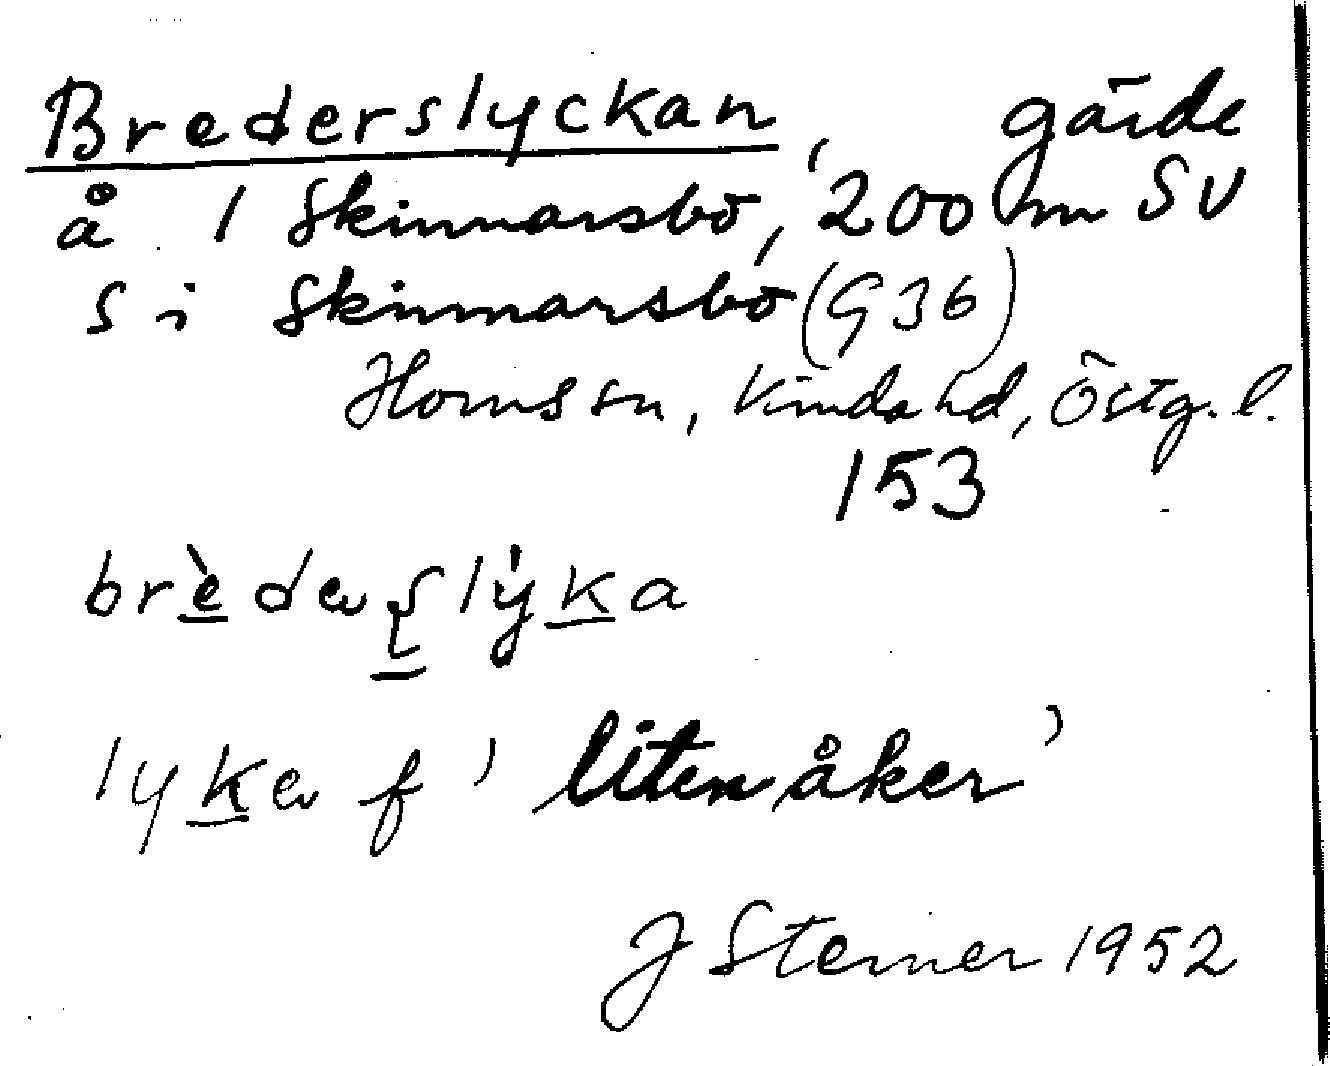 Brederslyckan, gärde
å 1 Skinnarsbo, 200 m SV
S i Skinnarsbo (G 36)
Horns sn, Kinda hd, Östg. l.
153
brè̲dəʂ̲lýk̲a
lyk̲ə f 'liten åker'
J Sterner 1952